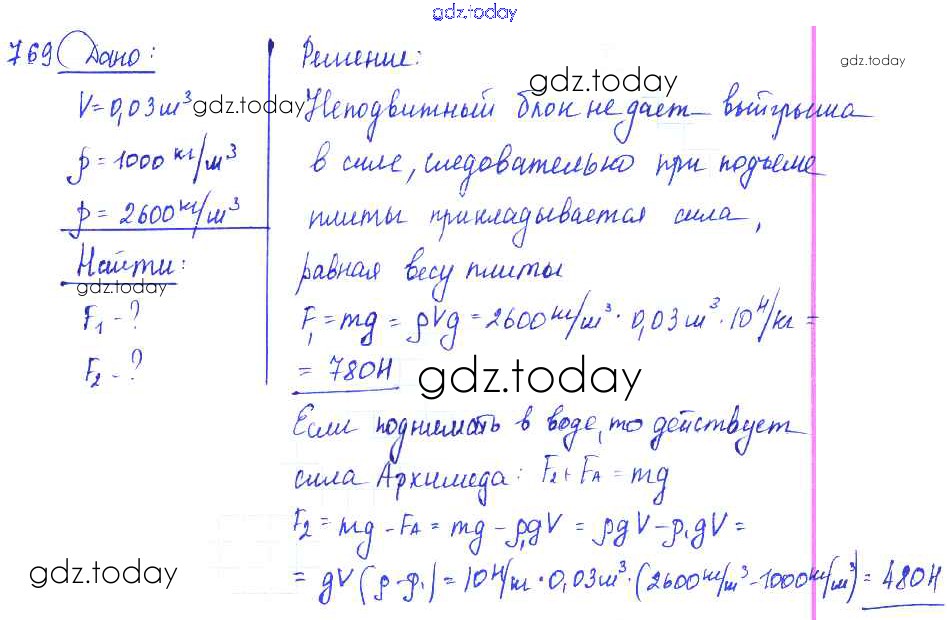 gdz.today
769 Дано:
V = 0,03 м³ gdz.today
ρ = 1000 кг/м³
ρ = 2600 кг/м³
Найти:
gdz.today
F₁ - ?
F₂ - ?
Решение:
gdz.today
gdz.today
Неподвижный блок не дает выигрыша
в силе, следовательно при подъеме
плиты прикладывается сила,
равная весу плиты
F₁ = mg = ρVg = 2600 кг/м³ · 0,03 м³ · 10 Н/кг =
= 780Н
gdz.today
Если поднимать в воде, то действует
сила Архимеда: F₂ + FА = mg
F₂ = mg - FА = mg - ρ₁gV = ρgV - ρ₁gV =
= gV(ρ - ρ₁) = 10 Н/кг · 0,03 м³ · (2600 кг/м³ - 1000 кг/м³) = 480Н
gdz.today